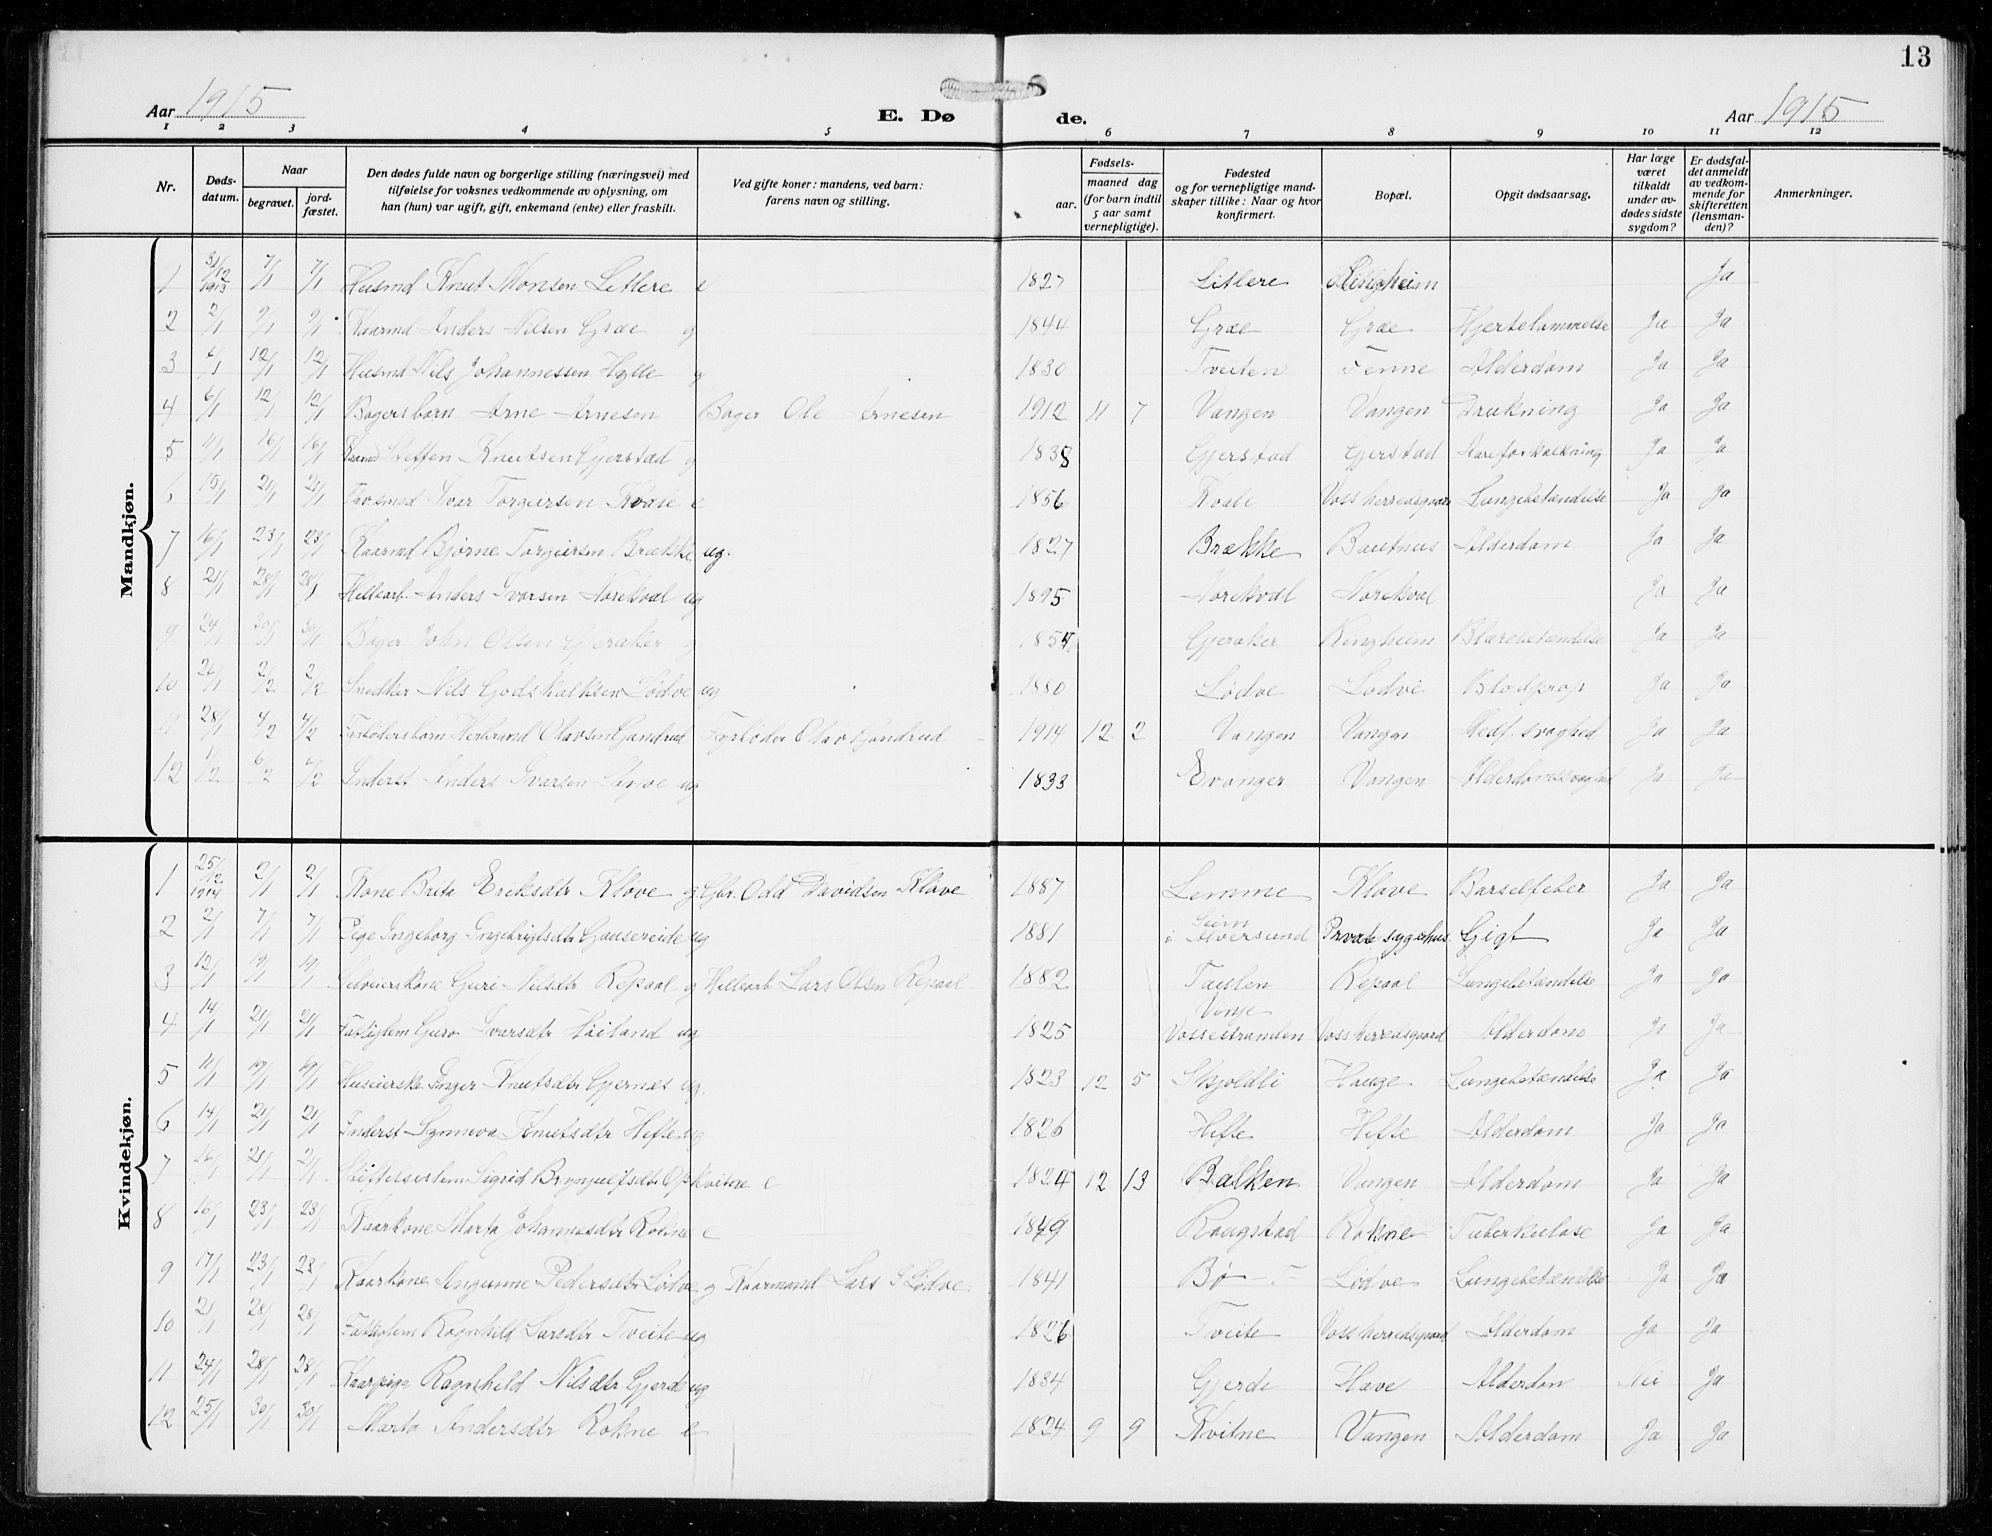 13
Aar 1915 E. Dø de. Aar 1915
1 2 3 4 5 6 7 8 9 10 11 12
Nr. Døds-datum. Naar begravet. jord-fæstet. Den dødes fulde navn og borgerlige stilling (næringsvei) med tilføielse for voksnes vedkommende av oplysning, om han (hun) var ugift, gift, enkemand (enke) eller fraskilt. Ved gifte koner: mandens, ved barn: farens navn og stilling. Fødsels- aar. maaned dag (for barn indtil 5 aar samt vernepligtige). Fødested og for vernepligtige mand-skaper tillike: Naar og hvor konfirmert. Bopæl. Opgit dødsaarsag. Har læge været tilkaldt under av-dødes sidste sygdom? Er dødsfal-det anmeldt av vedkom-mende for skifteretten (lensman-den)? Anmerkninger.
Mandkjøn.
1 31/12 1913 7/1 7/1 Husmd Knut Monsen Litlere e 1827 Litlere Ja
2 2/1 9/1 9/1 Kaarmd Anders Nilsen Græe g 1844 Græe Græe Hjertelammelse Ja Ja
3 4/1 12/1 12/1 Husmd Nils Johannessen Hylle g 1830 Tveiten Tenne Alderdom Ja Ja
4 6/1 12/1 12/1 Bagersbarn Arne Arnesen Bager Ole Arnesen 1912 11 7 Vangen Vangen Drukning Ja Ja
5 11/1 16/1 16/1 Steffen Knutsen Gjerstad g 1838 Gjerstad Gjerstad Aareforkalkning Ja Ja
6 15/1 21/1 21/1 Ivar Torgeirsen Kvale e 1856 Kvale Voss herredsgaard Lungebetændelse Ja Ja
7 16/1 23/1 23/1 Kaarmd Bjørne Torgeirsen Brække ug. 1827 Brække Alderdom Ja Ja
8 21/1 28/1 28/1 Hellearb. Anders Ivarsen Norekval ug 1895 Norekval Norekval Ja Ja
9 24/1 30/1 30/1 Bager John Olsen Gjeraker g 1857 Gjeraker Ringheim Blærebetændelse Ja Ja
10 26/1 2/2 2/2 Snedker Nils Godskalksen Lødve ug 1880 Lødve Lødve Blodprop Ja Ja
11 28/1 4/2 4/2 Fyrbødersbarn Herbrand Olavsen Gandrud Fyrbøder Olav Gandrud 1914 12 2 Vangen Vangen Medf. svaghed Ja Ja
12 1/2 6/2 6/2 Inderst Anders Iversen Styve ug 1833 Evanger Vangen Alderdomssvaghed Ja Ja
Kvindekjøn.
1 25/12 1914 2/1 2/1 Kone Brita Eriksdtr Kløve g Gbr. Odd Davidsen Kløve 1887 Lemme Kløve Barselfeber Ja Ja
2 2/1 7/1 7/1 Pige Ingeborg Ingebrigtsdtr Gausereide ug 1881 Seim i Alversund Private sygehus Gigt Ja Ja
3 12/1 19/1 19/1 Selveierskone Guri Nilsdtr Repaal g Hellearb Lars Olsen Repaal 1882 Taulen Repaal Lungebetændelse Ja Ja
4 14/1 21/1 21/1 Fattiglem Guro Ivarsdtr Høiland ug 1825 Vinje Vossestranden Voss herredsgaard Alderdom Ja Ja
5 11/1 19/1 19/1 Huseierske Inger Knutsdtr Gjernes ug. 1823 12 5 Skjoldli Hauge Lungebetændelse Ja Ja
6 14/1 21/1 21/1 Inderst Synneva Knutsdtr Hefte ug 1826 Hefte Hefte Alderdom Ja Ja
7 16/1 21/1 21/1 Stiftelseslem Sigrid Brynjulfsdtr Opkvitne e 1824 12 13 Balken Vangen Alderdom Ja Ja
8 16/1 23/1 23/1 Kaarkone Marta Johannesdtr Rokne e 1849 Rougstad Rokne Tuberkulose Ja Ja
9 17/1 23/1 23/1 Kaarkone Angunne Pedersdtr Lødve g Kaarmand Lars S Lødve 1841 Bø Lødve Lungebetændelse Ja Ja
10 21/1 28/1 28/1 Fattiglem Ragnhild Larsdtr Tveite ug 1826 Tveite Voss herredsgaard Alderdom Ja Ja
11 24/1 28/1 28/1 Kaarpige Ragnhild Nilsdtr Gjerde ug 1834 Gjerde Have Alderdom Nei Ja
12 25/1 30/1 30/1 Marta Andersdtr Rokne e 1824 9 9 Kvitne Vangen Alderdom Ja Ja